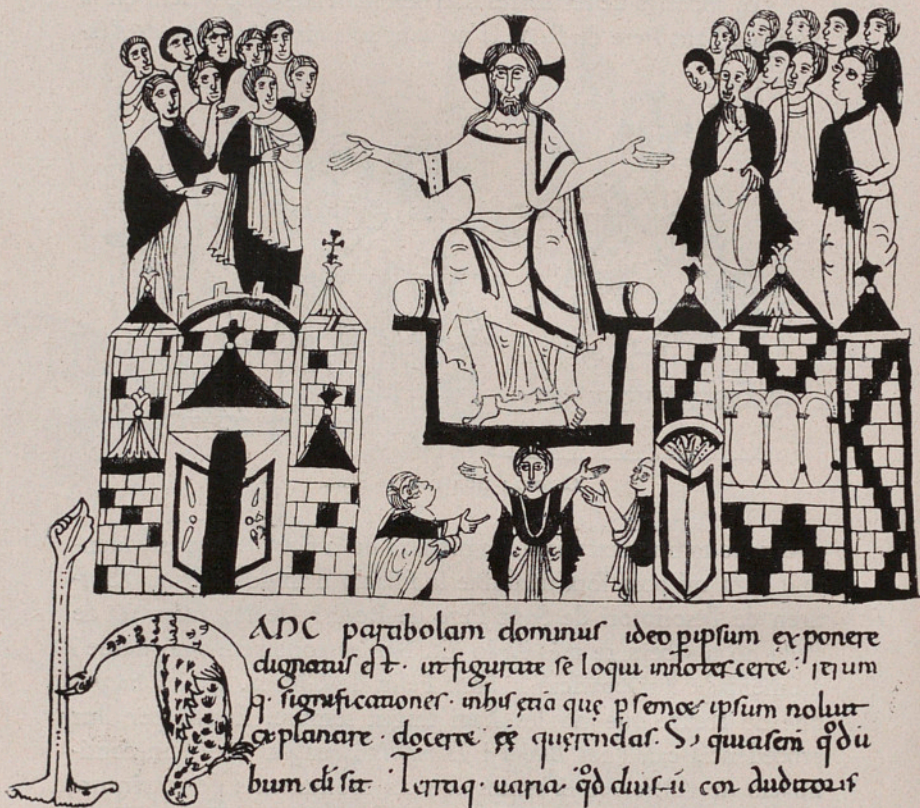 hANC parabolam dominus ideo pipsum exponere
dignatus est · ut figurate se loqui innotesceret · rerum
q · significationes · inhis etia que p semet ipsum noluit
explanare · docere ee querendas. S; quia semi qđ du
bum di sit Terraq · uaria qđ diuisū cor auditoris